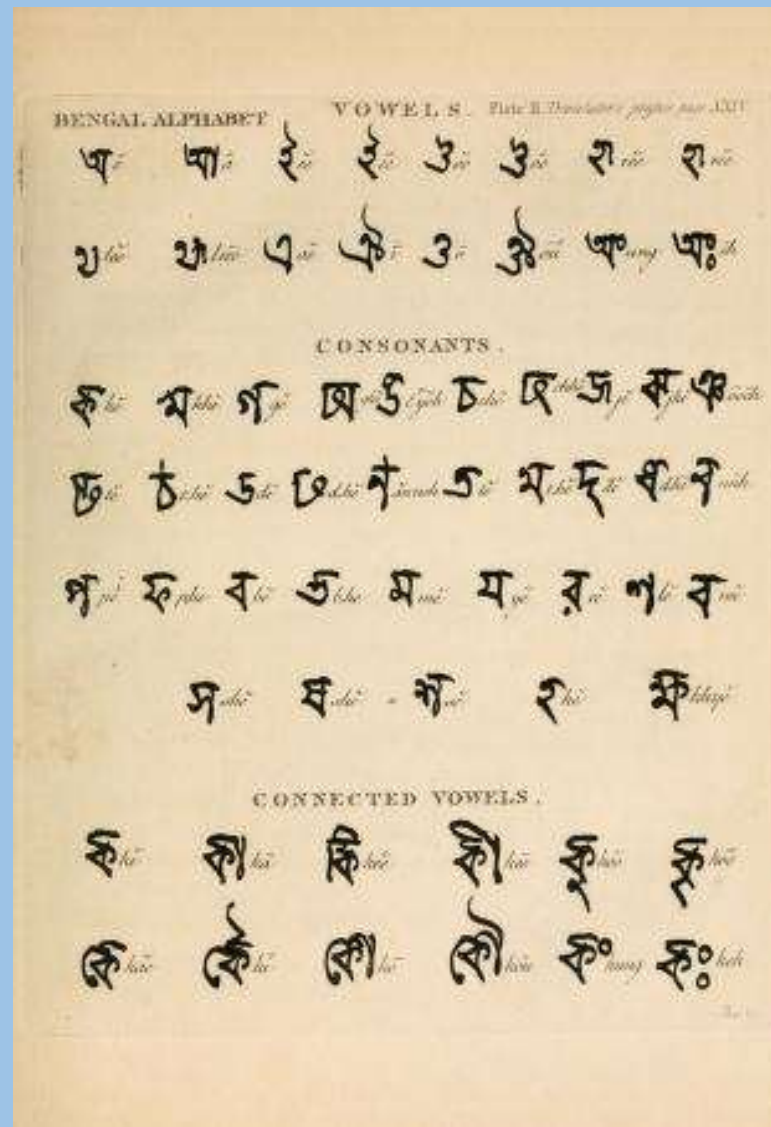 BENGAL ALPHABET VOWELS. Plate II. Translator's preface page XXIV
অ ŏ আ ā ই ĕĕ ঈ ēē উ ŏŏ ঊ ōō ঋ rĕĕ ৠ rēē
ঌ lĕĕ ৡ lēē এ āē ঐ ī ও ō ঔ ōū অং ung অঃ ăh
CONSONANTS.
ক kŏ খ khŏ গ gŏ ঘ ঙ চ chŏ ছ chhŏ জ jŏ ঝ jhŏ ঞ
ট tŏ ঠ thŏ ড dŏ ঢ dhŏ ণ ত tŏ থ thŏ দ dŏ ধ dhŏ ন
প pŏ ফ phŏ ব bŏ ভ bhŏ ম mŏ য yŏ র rŏ ল lŏ ব
স shŏ ষ shŏ শ হ hŏ ক্ষ khyŏ
CONNECTED VOWELS.
ক kŏ কা kā কি kĕĕ কী kēē কু kŏŏ কূ kōō
কে kāē কৈ kī কো kō কৌ kōū কং kung কঃ kĕh